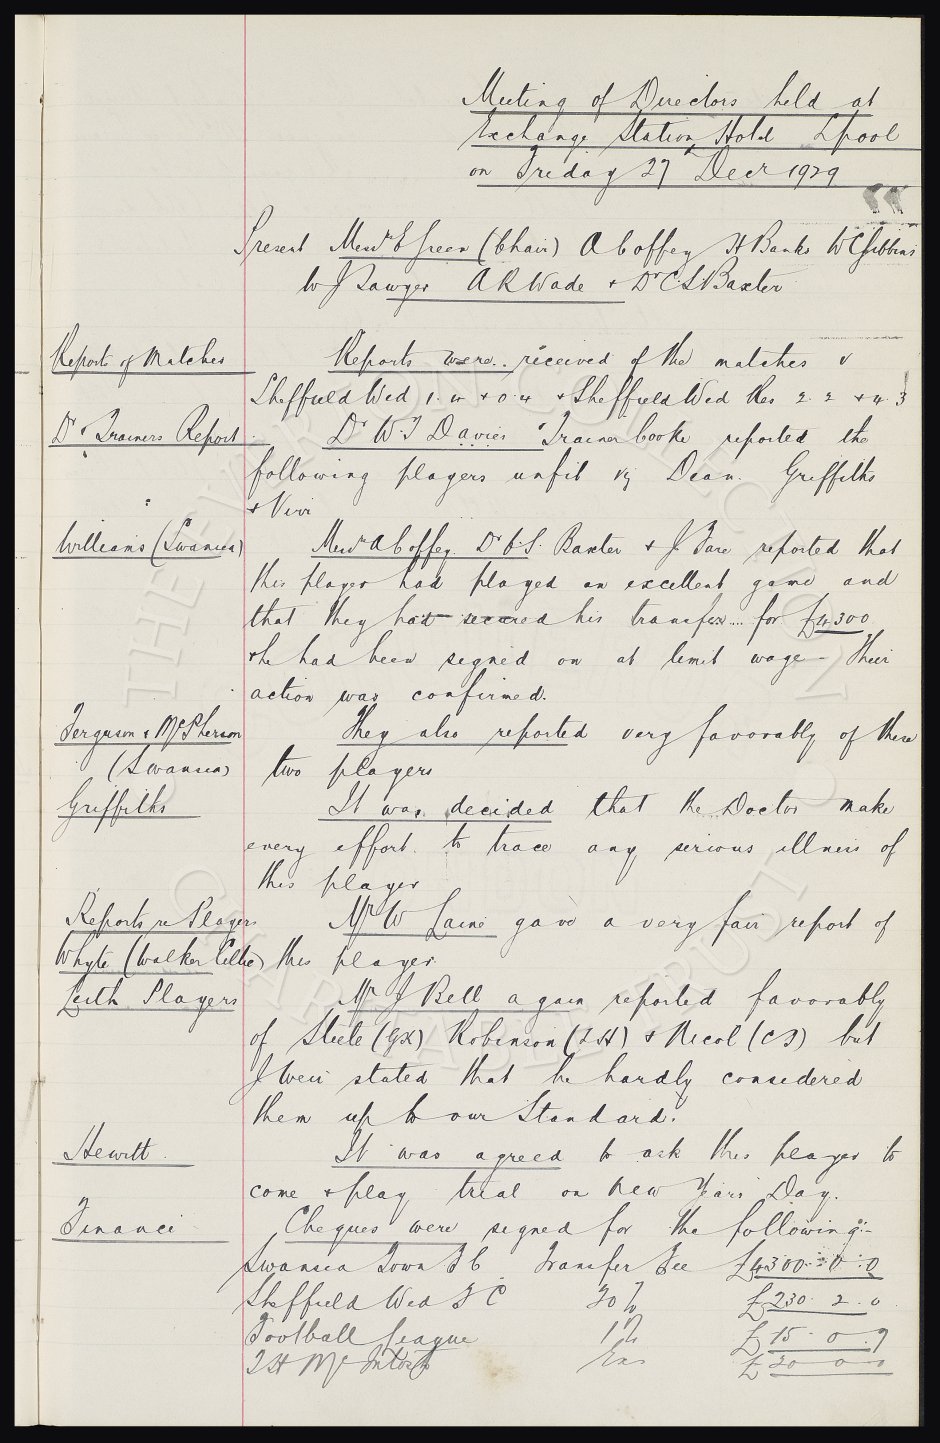 Meeting of Directors held at
Exchange Station Hotel Lpool
on Friday 27th Decr 1929
Present Messrs E Green (Chair) A Coffey H Banks W C Gibbins
W J Sawyer A R Wade & Dr C S Baxter
Report of Matches Reports were received of the matches v
Sheffield Wed 1. 4 & 0. 4 & Sheffield Wed Res 2. 2 & 4. 3
Dr & Trainers Report Dr W J Davies & Trainer Cooke reported the
following players unfit viz Dean. Griffiths
& Virr
Williams (Swansea) Messrs A Coffey. Dr C. S. Baxter & J. Fare reported that
this player had played an excellent game and
that they had secured his transfer for £4300
& he had been signed on at limit wage - Their
action was confirmed.
Ferguson & McPherson They also reported very favorably of these
(Swansea) two players
Griffiths It was decided that the Doctor make
every effort to trace any serious illness of
this player
Reports re Players Mr W Laine gave a very fair report of
Whyte (Walker Celtic) this player.
Leith Players Mr J Bell again reported favorably
of Steele (GK) Robinson (LH) & Nicol (CF) but
J Weir stated that he hardly considered
them up to our Standard.
Hewitt It was agreed to ask this player to
come & play trial on New Years Day.
Finance Cheques were signed for the following:-
Swansea Town F C Transfer Fee £4300. 0. 0
Sheffield Wed F C 20% £230. 2. 0
Football League 1% £15. 0. 9
J H McIntosh Exs £20 0 0
THE EVERTON COLLECTION
CHARITABLE TRUST